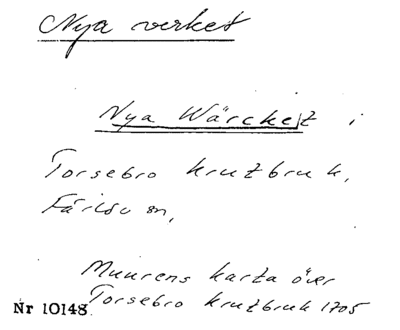 Nya verket
Nya Wärcket i
Torsebro krutbruk,
Färlöv sn,
Muurens karta över
Nr 10148 Torsebro krutbruk 1705